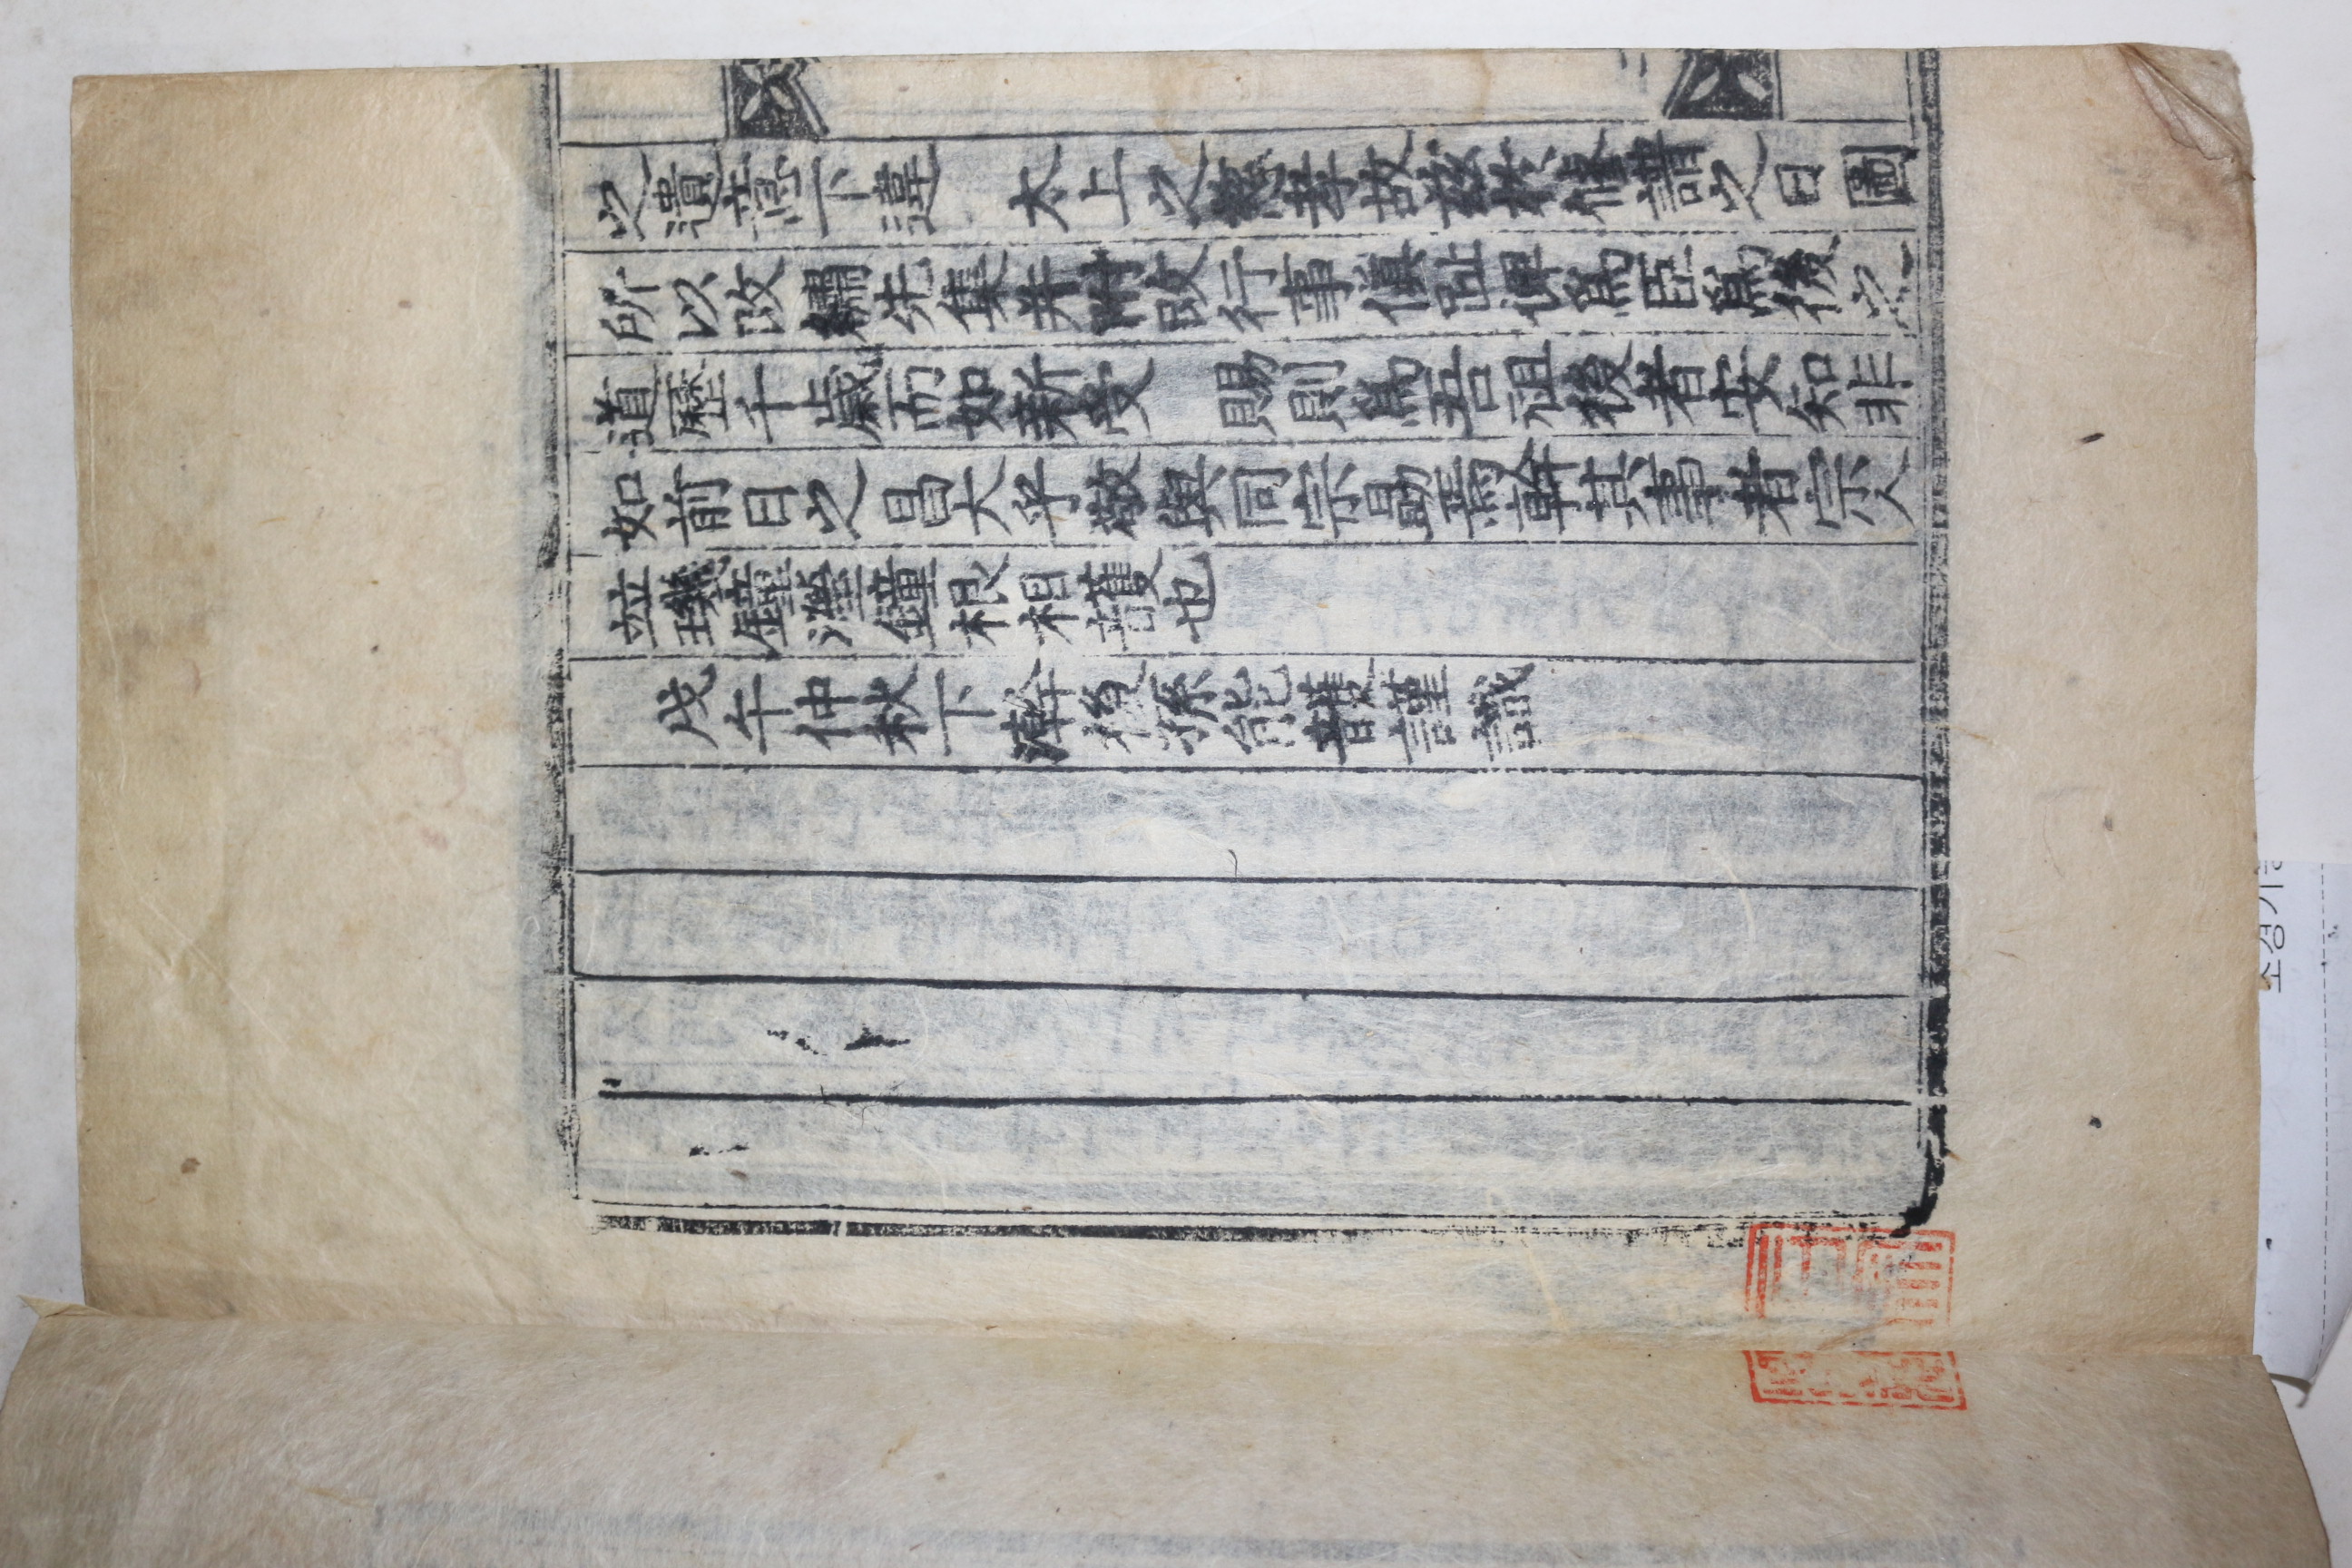 之遺意下違　太上之慈孝故玆於修譜之日圖
所以改繡先集并附改行事傎趾俾爲臣爲後之
道歷千歲而如新受　賜則爲吾祖後者安知非
如前日之昌大乎敬與同宗勗焉幹其事者宗人
竝璣鐘瀅鐘根相頀也
戊午仲秋下澣後孫能頀謹識
二
조경기